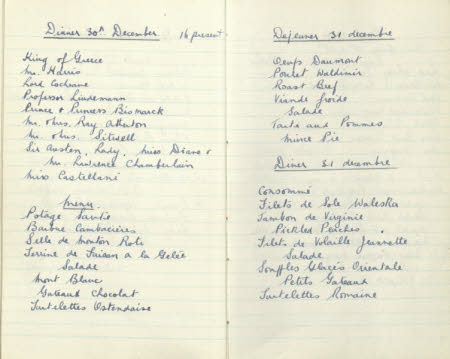 Dinner 30th December 16 present
King of Greece
Mr. Harris
Lord Cochrane
Professor Lindemann
Prince & Princess Bismarck
Mr. & Mrs. Ray Atherton
Mr. & Mrs. Sitwell
Sir Austen, Lady, Miss Diane &
Mr. Lawrence Chamberlain
Miss Castellane
Menu
Potage Santé
Barbue Cambacières
Selle de Mouton Roti
Terrine de Faison a la Gelée
Salade
Mont Blanc
Gateaux Chocolat
Tartelettes Ostendaise
Dejeuner 31 decembre
Oeufs Daumont
Poulet Waldimir
Roast Beef
Viande froide
Salade
Tarte aux Pommes
Mince Pie
Diner 31 decembre
Consommé
Filets de Sole Waleska
Jambon de Virginie
Pickled Peaches
Filets de Volaille Jeannette
Salade
Souffles Glacés Orientale
Petits Gateaux
Tartelettes Romaine